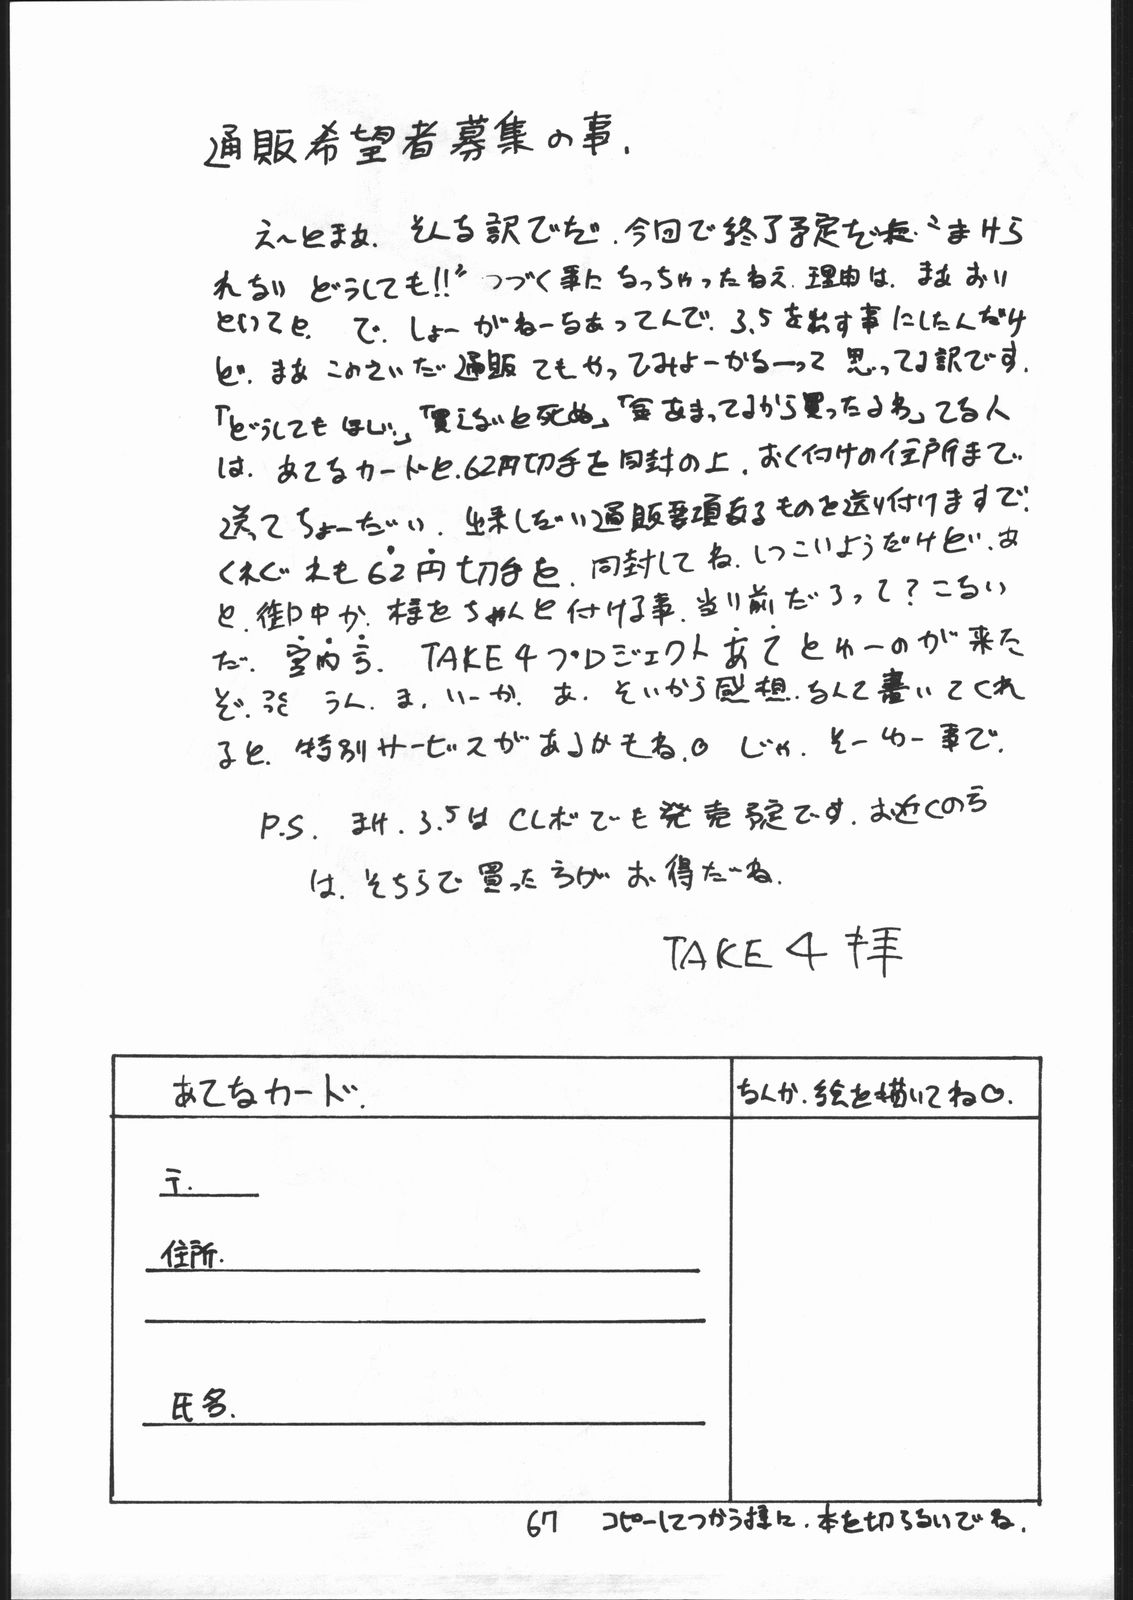 通販希望者募集の事.
え〜とまぁ. そんな訳でだ. 今回で終了予定だった “まけら
れない どうしても!!” つづく事になっちゃったねえ. 理由は. まあ おい
といてと. で. しょーがねーなあってんで. 3.5を出す事にしたんだけ
ど. まあ このさいだ 通販でもやってみよーかなーって 思ってる訳です.
「どうしてもほしい.」「買えないと死ぬ」「金あまってるから買ったるわ」てな人
は. あてなカードと. 62円切手を同封の上. おく付けの住所まで
送ってちょーだい. 出来しだい通販要項なるものを送り付けますで.
くれぐれも62円切手を. 同封してね. しつこいようだけど. あ
と. 御中か. 様をちゃんと付ける事. 当り前だろって? こないだ
だ. 宮内方. TAKE4プロジェクトあて とゆーのが来た
ぞ. うん. ま. いーか. あ. そいから感想. なんて書いてくれ
ると. 特別サービスがあるかもね. じゃ. そーゆー事で.
P.S. まけ. 3.5は CLボでも発売予定です. お近くの方
は. そちらで買った方が お得だーね.
TAKE 4 拝
あてなカード.
なんか. 絵を描いてね♡.
〒.
住所.
氏名.
67 コピーしてつかう様に. 本を切らないでね.